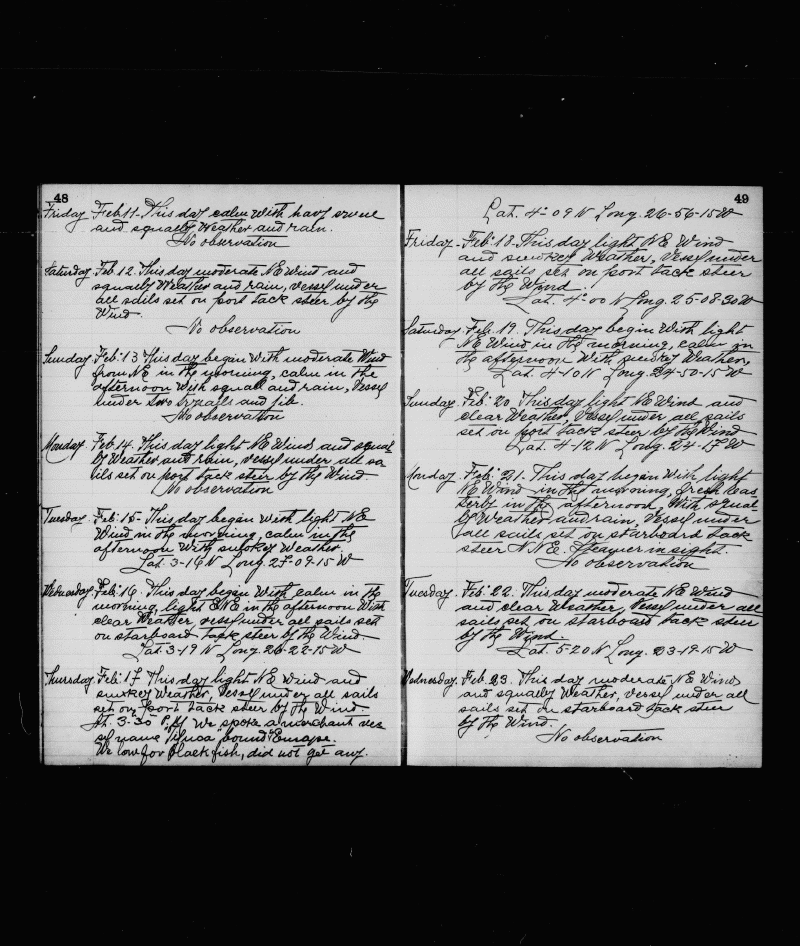 48
Friday Feb. 11. This day calm with havy
and squally Weather and rain.
No observation
Saturday Feb. 12. This day moderate NE Wind and
squally Weather and rain, vessel under
all sails set on port tack steer by the
Wind.
No observation
Sunday Feb. 13 This day begin with moderate Wind
from NE in the morning, calm in the
afternoon with squall and rain, Vessel
under two and jib.
No observation
Monday Feb 14. This day light NE Wind and squal
ly Weather and rain, vessel under all sa
ils set on port tack steer by the Wind
No observation
Tuesday Feb. 15- This day began with light NE
Wind in the morning, calm in the
afternoon with smokey Weather.
Lat. 3-16 N Long. 27-09-15 W
Wednesday Feb. 16. This day begin with calm in the
morning, light ENE in the afternoon with
clear Weather, vessel under all sails set
on starboard tack steer by the Wind
Lat. 3-19 N Long. 26-22-15 W
Thursday Feb. 17 This day light NE Wind and
smokey Weather, Vessel under all sails
set on port tack steer by the Wind.
At 3-30 P.M. We spoke a merchant ves
sel name bound Europe.
We low for blackfish, did not get any.
49
Lat. 4-09 N Long. 26-56-15 W
Friday - Feb. 18. This day light NE Wind
and smokey Weather, Vessel under
all sails set on port tack steer
by the Wind.
Lat. 4-00 N Long. 25-08-30 W
Saturday. Feb. 19. This day begin with light
NE Wind in the morning, calm in
the afternoon with smokey Weather,
Lat. 4-10 N Long. 24-50-15 W
Sunday. Feb. 20. This day light NE Wind and
clear Weather, Vessel under all sails
set on port tack steer by the Wind
Lat. 4-12 N Long. 24-17 W
Monday Feb. 21. This day began with light
NE Wind in the morning, fresh eas
terly in the afternoon, with squal
ly Weather and rain, Vessel under
all sails set on starboard tack
steer N.N.E. Steamer in sight.
No observation
Tuesday. Feb. 22. This day moderate NE Wind
and clear Weather, Vessel under all
sails set on starboard tack steer
by the Wind.
Lat. 5-20 N Long. 23-19-15 W
Wednesday Feb. 23. This day moderate NE Wind
and squally Weather, vessel under all
sails set on starboard tack steer
by the Wind.
No observation